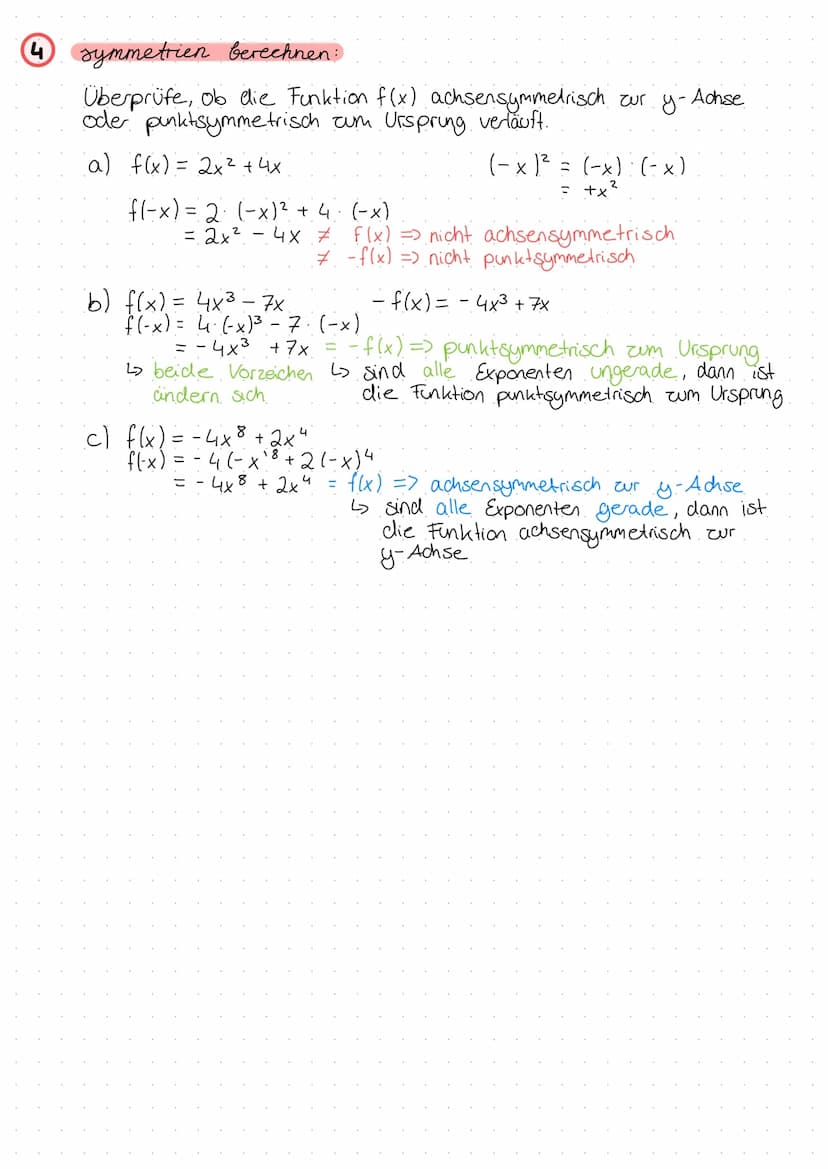 4 Symmetrien berechnen:
Überprüfe, ob die Funktion f(x) achsensymmetrisch zur y-Achse
oder punktsymmetrisch zum Ursprung verläuft.
a) f(x) = 2x² + 4x (-x)² = (-x) · (-x)
= +x²
f(-x) = 2 · (-x)² + 4 · (-x)
= 2x² - 4x ≠ f(x) => nicht achsensymmetrisch
≠ -f(x) => nicht punktsymmetrisch
b) f(x) = 4x³ - 7x -f(x) = -4x³ + 7x
f(-x) = 4·(-x)³ - 7 · (-x)
= -4x³ +7x = -f(x) => punktsymmetrisch zum Ursprung
↳ beide Vorzeichen ↳ sind alle Exponenten ungerade, dann ist
ändern sich die Funktion punktsymmetrisch zum Ursprung
c) f(x) = -4x⁸ + 2x⁴
f(-x) = -4(-x)⁸ + 2(-x)⁴
= -4x⁸ + 2x⁴ = f(x) => achsensymmetrisch zur y-Achse
↳ sind alle Exponenten gerade, dann ist
die Funktion achsensymmetrisch zur
y-Achse